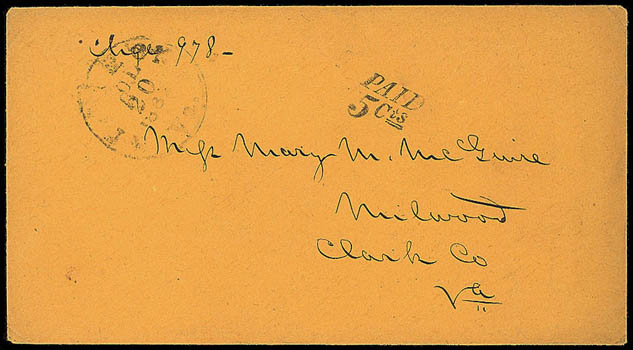 Chge 978-
PAID
5 Cts
Miss Mary M. McGuire
Milwood
Clark Co
Va